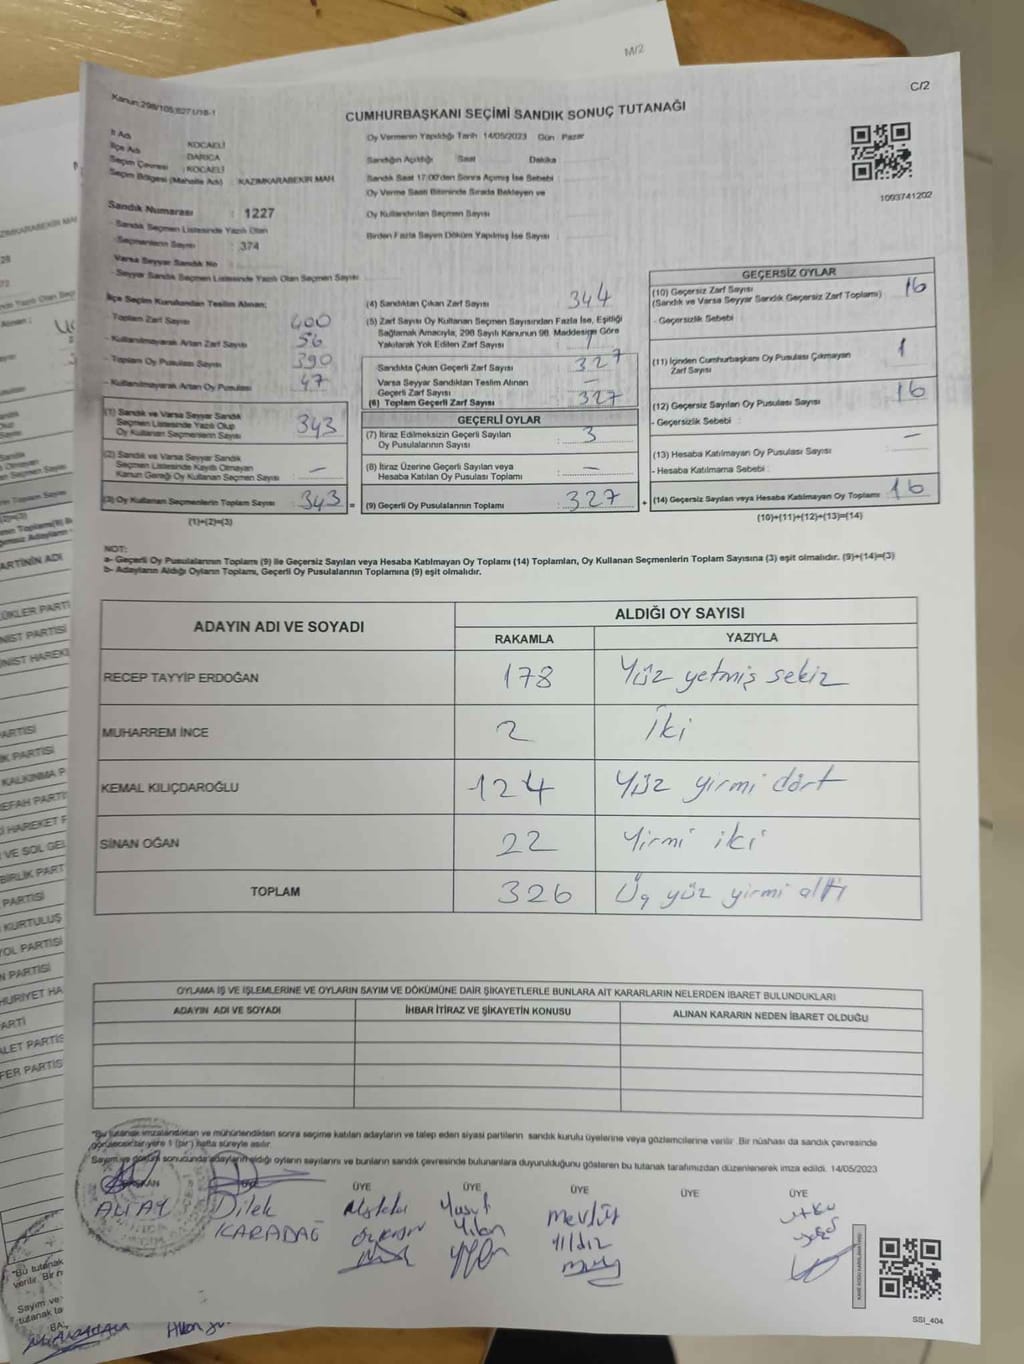 M/2
C/2
Kanun:298/105,6271/18-1
CUMHURBAŞKANI SEÇİMİ SANDIK SONUÇ TUTANAĞI
İl Adı : KOCAELİ
İlçe Adı : DARICA
Seçim Çevresi : KOCAELİ
Seçim Bölgesi (Mahalle Adı) : KAZIMKARABEKİR MAH
Sandık Numarası : 1227
- Sandık Seçmen Listesinde Yazılı Olan
Seçmenlerin Sayısı : 374
Varsa Seyyar Sandık No
- Seyyar Sandık Seçmen Listesinde Yazılı Olan Seçmen Sayısı
Oy Vermenin Yapıldığı Tarih 14/05/2023 Gün Pazar
Sandığın Açıldığı Saat Dakika
Sandık Saat 17:00'den Sonra Açımış İse Sebebi
Oy Verme Saati Bitiminde Sırada Bekleyen ve
Oy Kullandırılan Seçmen Sayısı
Birden Fazla Sayım Döküm Yapılmış İse Sayısı
1093741202
İlçe Seçim Kurulundan Teslim Alınan;
- Toplam Zarf Sayısı 400
- Kullanılmayarak Artan Zarf Sayısı 56
- Toplam Oy Pusulası Sayısı 390
- Kullanılmayarak Artan Oy Pusulası 47
(1) Sandık ve Varsa Seyyar Sandık
Seçmen Listesinde Yazılı Olup
Oy Kullanan Seçmenlerin Sayısı : 343
(2) Sandık ve Varsa Seyyar Sandık
Seçmen Listesinde Kayıtlı Olmayan
Kanun Gereği Oy Kullanan Seçmen Sayısı : –
(3) Oy Kullanan Seçmenlerin Toplam Sayısı : 343 =
(1)+(2)=(3)
(4) Sandıktan Çıkan Zarf Sayısı 344
(5) Zarf Sayısı Oy Kullanan Seçmen Sayısından Fazla İse, Eşitliği
Sağlamak Amacıyla, 298 Sayılı Kanunun 98. Maddesine Göre
Yakılarak Yok Edilen Zarf Sayısı 1
Sandıkta Çıkan Geçerli Zarf Sayısı : 327
Varsa Seyyar Sandıktan Teslim Alınan
Geçerli Zarf Sayısı : –
(6) Toplam Geçerli Zarf Sayısı : 327
GEÇERLİ OYLAR
(7) İtiraz Edilmeksizin Geçerli Sayılan
Oy Pusulalarının Sayısı : 3
(8) İtiraz Üzerine Geçerli Sayılan veya
Hesaba Katılan Oy Pusulası Toplamı : –
(9) Geçerli Oy Pusulalarının Toplamı : 327 +
GEÇERSİZ OYLAR
(10) Geçersiz Zarf Sayısı
(Sandık ve Varsa Seyyar Sandık Geçersiz Zarf Toplamı) : 16
- Geçersizlik Sebebi :
(11) İçinden Cumhurbaşkanı Oy Pusulası Çıkmayan
Zarf Sayısı 1
(12) Geçersiz Sayılan Oy Pusulası Sayısı : 16
- Geçersizlik Sebebi :
(13) Hesaba Katılmayan Oy Pusulası Sayısı : –
- Hesaba Katılmama Sebebi :
(14) Geçersiz Sayılan veya Hesaba Katılmayan Oy Toplamı : 16
(10)+(11)+(12)+(13)=(14)
NOT:
a- Geçerli Oy Pusulalarının Toplamı (9) ile Geçersiz Sayılan veya Hesaba Katılmayan Oy Toplamı (14) Toplamları, Oy Kullanan Seçmenlerin Toplam Sayısına (3) eşit olmalıdır. (9)+(14)=(3)
b- Adayların Aldığı Oyların Toplamı, Geçerli Oy Pusulalarının Toplamına (9) eşit olmalıdır.
ADAYIN ADI VE SOYADI
ALDIĞI OY SAYISI
RAKAMLA YAZIYLA
RECEP TAYYİP ERDOĞAN 178 Yüz yetmiş sekiz
MUHARREM İNCE 2 İki
KEMAL KILIÇDAROĞLU 124 Yüz yirmi dört
SİNAN OĞAN 22 Yirmi iki
TOPLAM 326 Üç yüz yirmi altı
OYLAMA İŞ VE İŞLEMLERİNE VE OYLARIN SAYIM VE DÖKÜMÜNE DAİR ŞİKAYETLERLE BUNLARA AİT KARARLARIN NELERDEN İBARET BULUNDUKLARI
ADAYIN ADI VE SOYADI İHBAR İTİRAZ VE ŞİKAYETİN KONUSU ALINAN KARARIN NEDEN İBARET OLDUĞU
"Bu tutanak imzalandıktan ve mühürlendikten sonra seçime katılan adayların ve talep eden siyasi partilerin sandık kurulu üyelerine veya gözlemcilerine verilir. Bir nüshası da sandık çevresinde
görülecek bir yere 1 (bir) hafta süreyle asılır.
Sayım ve döküm sonucunda adayların aldığı oyların sayılarını ve bunların sandık çevresinde bulunanlara duyurulduğunu gösteren bu tutanak tarafımızdan düzenlenerek imza edildi. 14/05/2023
BAŞKAN ÜYE ÜYE ÜYE ÜYE ÜYE ÜYE
ALİ AY Dilek Yusuf Mevlüt Utku
KARADAĞ Yılan Yıldız
SSI_404